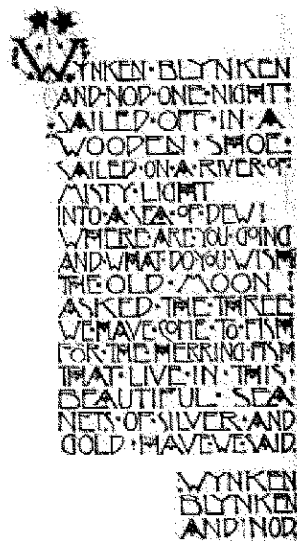 WYNKEN·BLYNKEN
AND·NOD·ONE·NIGHT·
SAILED·OFF·IN·A
WOODEN·SHOE·
SAILED·ON·A·RIVER·OF
MISTY·LIGHT
INTO·A·SEA·OF·DEW!
WHERE·ARE·YOU·GOING
AND·WHAT·DO·YOU·WISH
THE·OLD·MOON!
ASKED·THE·THREE
WE·HAVE·COME·TO·FISH
FOR·THE·HERRING·FISH
THAT·LIVE·IN·THIS·
BEAUTIFUL·SEA!
NETS·OF·SILVER·AND
GOLD·HAVE·WE·SAID
WYNKEN
BLYNKEN
AND·NOD